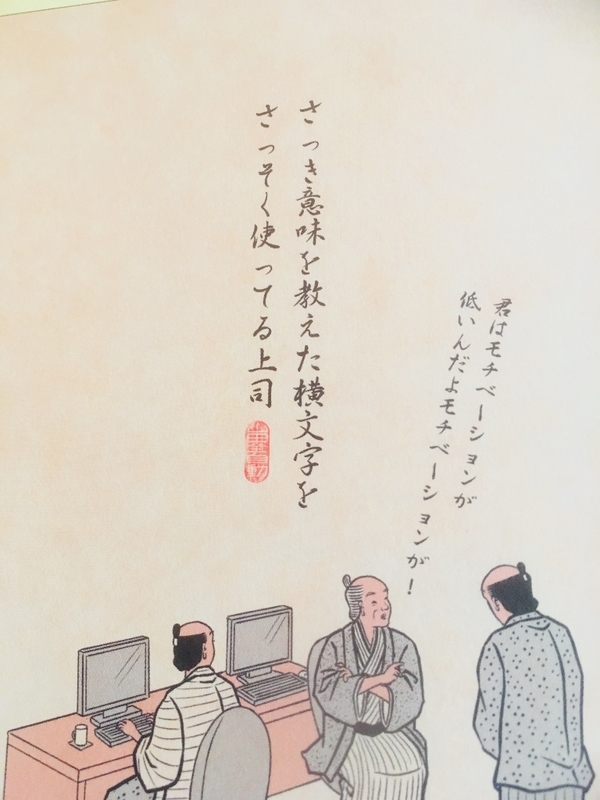 さっき意味を教えた横文字を
さっそく使ってる上司
君はモチベーションが
低いんだよモチベーションが！